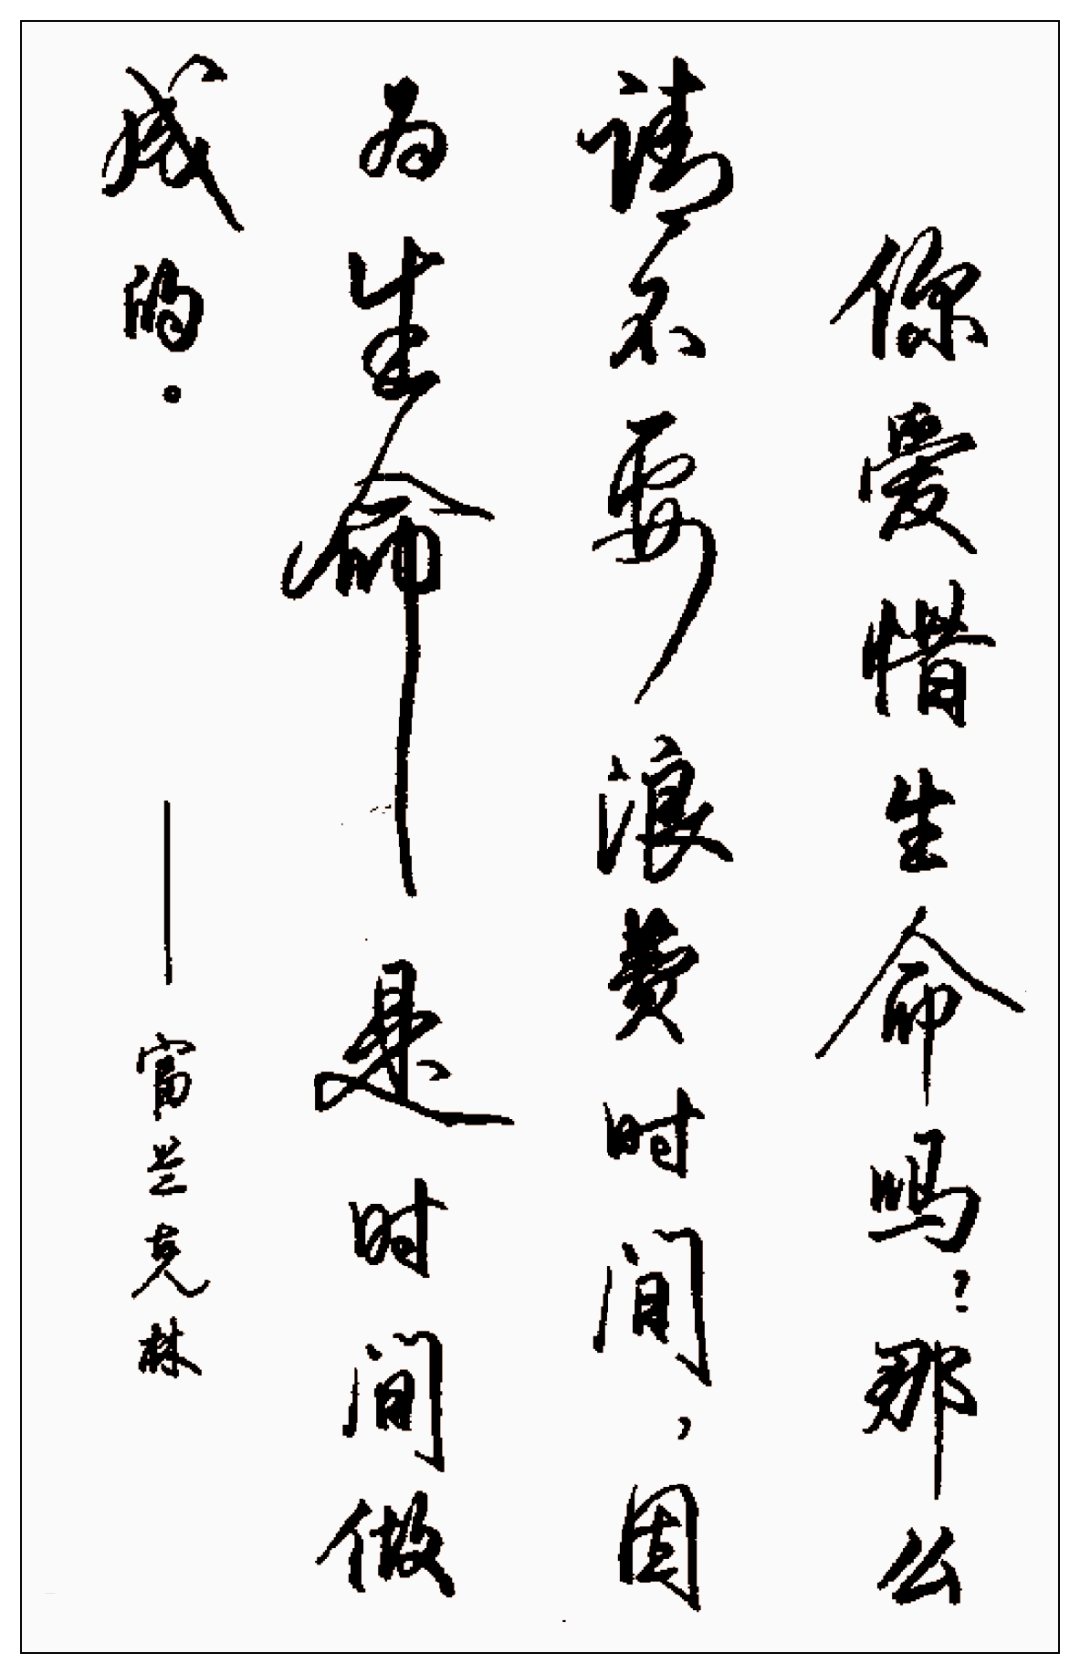 你爱惜生命吗？那么
请不要浪费时间，因
为生命是时间做
成的。
——富兰克林